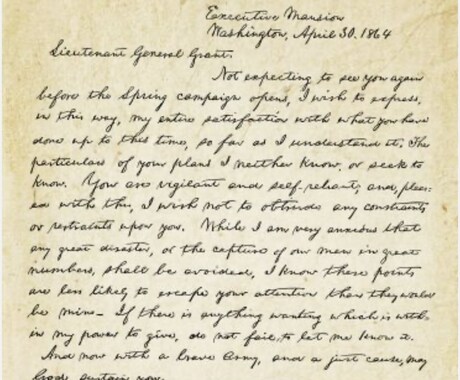 Executive Mansion
Washington, April 30. 1864
Lieutenant General Grant.
Not expecting to see you again
before the Spring campaign opens, I wish to express,
in this way, my entire satisfaction with what you have
done up to this time, so far as I understand it. The
particulars of your plans I neither know, or seek to
know. You are vigilant and self-reliant; and, pleas-
ed with this, I wish not to obtrude any constraints
or restraints upon you. While I am very anxious that
any great disaster, or the capture of our men in great
numbers, shall be avoided, I know these points
are less likely to escape your attention than they would
be mine- If there is anything wanting which is with-
in my power to give, do not fail to let me know it.
And now with a brave Army, and a just cause, may
God sustain you.